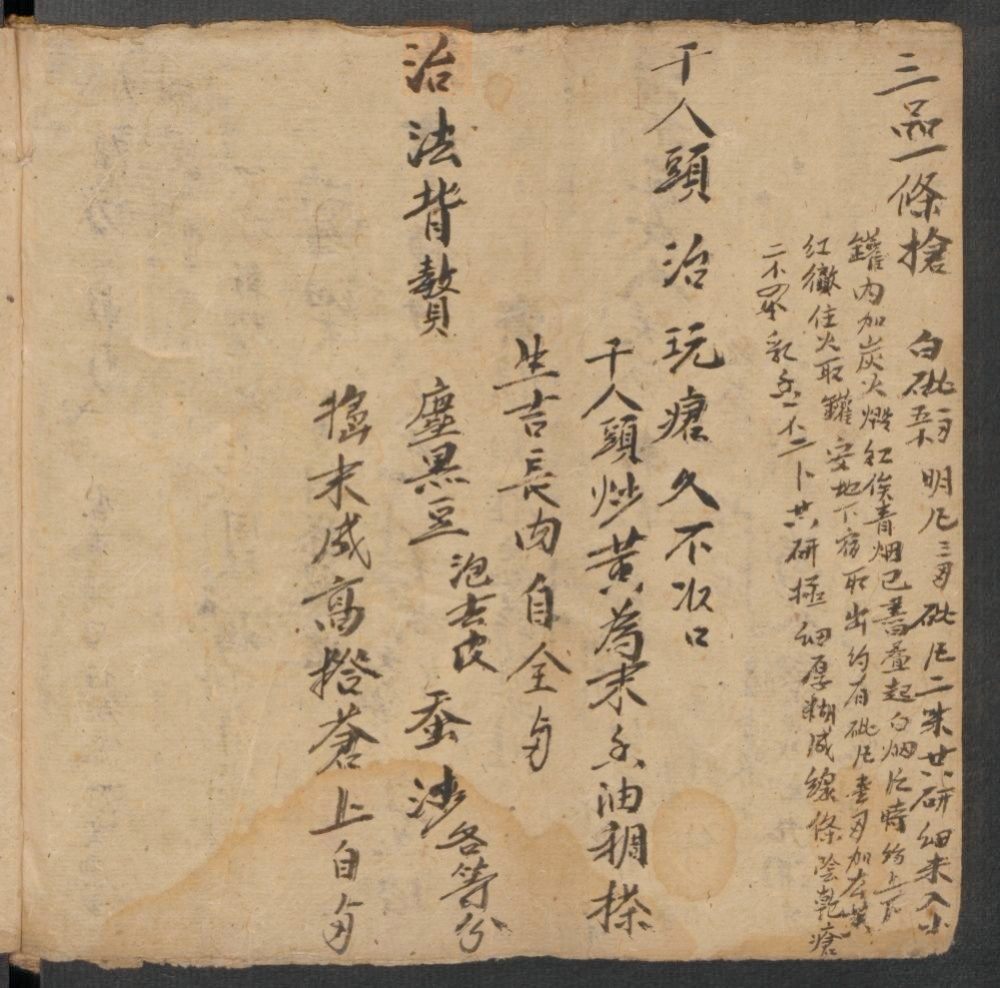 三品一條搶 白砒一㕥五卜 明凡三㕥 砒凡二味廿研細末入小
罐內加炭火煅紅俟青烟已書盡起白烟片時約上下
紅徹住火取罐安地下宿取出約有砒凡壹㕥加
二卜四 乳 一卜二卜共研極細厚糊成線條陰乾瘡
千人頭 治玩瘡久不收口
千人頭炒黃為末 油稠搽
生吉長肉自全
治法背贅 塵黑豆泡去皮 蚕沙各等分
搗末成膏搭蒼上自